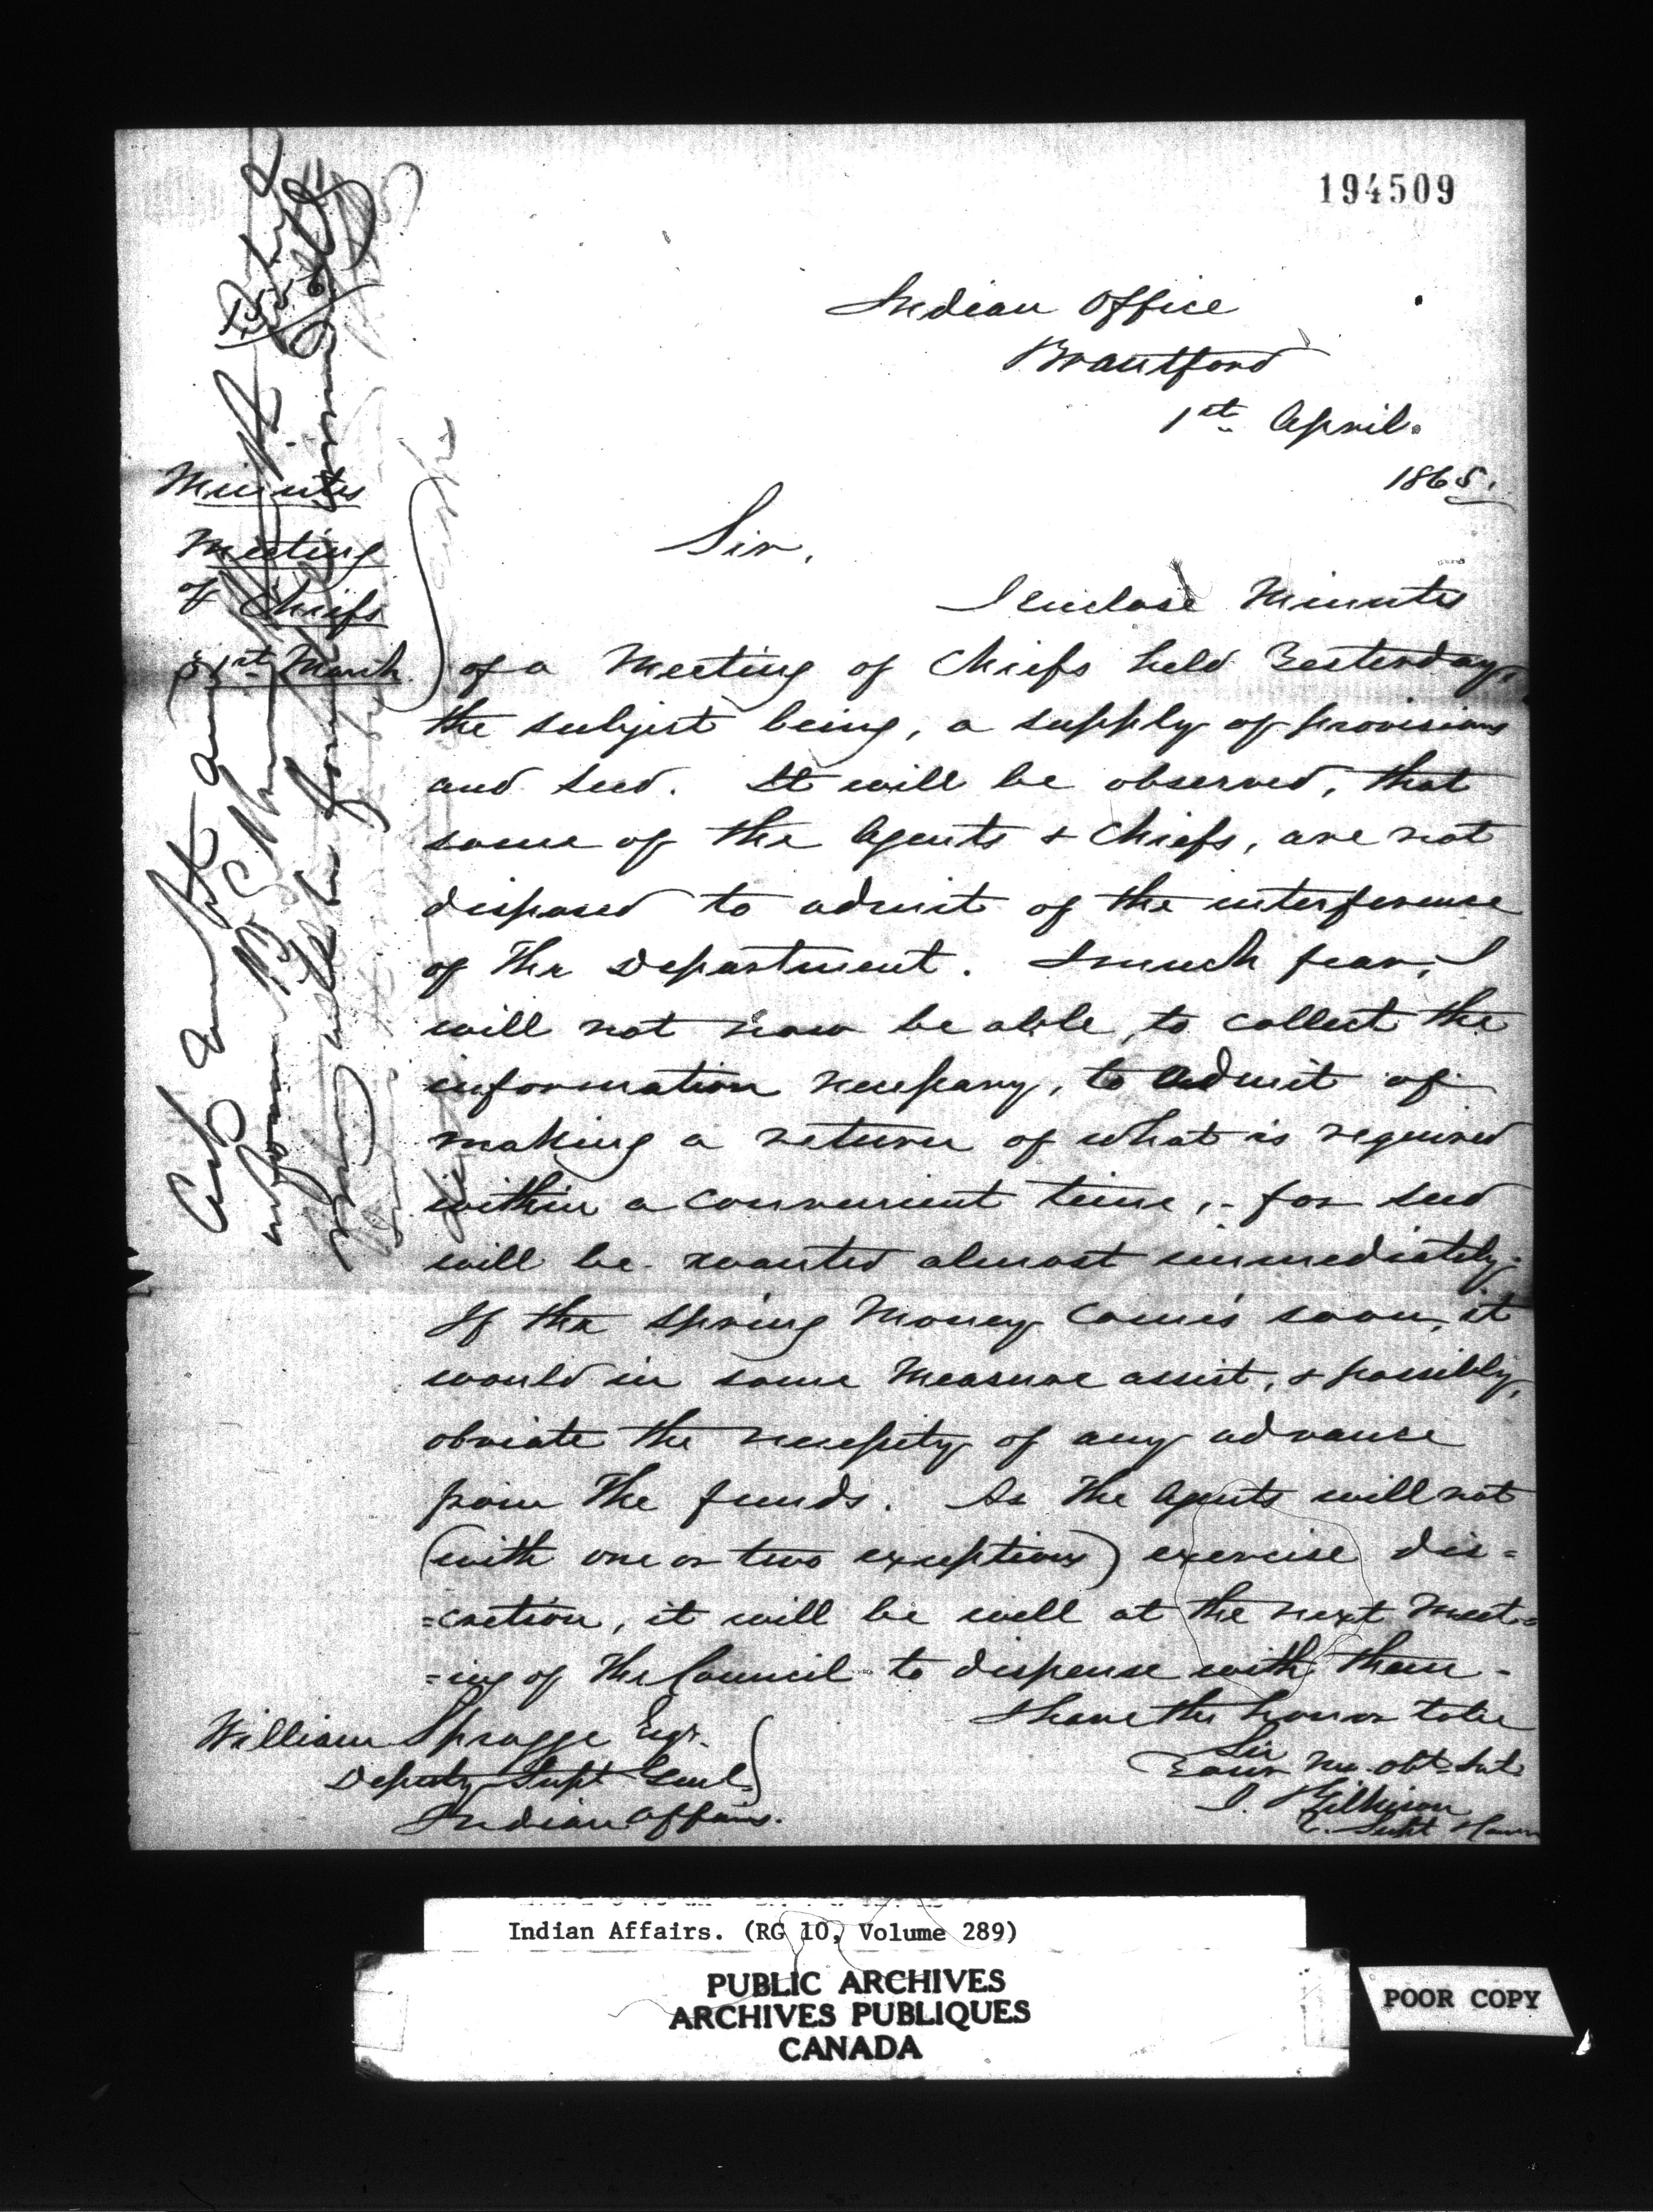 194509
Indian Office
Brantford
1st April.
1865.
Minutes
Meeting
of Chiefs
31st March.
Sir,
I enclose Minutes
of a Meeting of Chiefs held Yesterday,
the subject being, a supply of provisions
and seed. It will be observed, that
some of the Agents & Chiefs, are not
disposed to admit of the interference
of the Department. I much fear, I
will not now be able, to collect the
information necessary, to admit of
making a return of what is required
within a convenient time, - for seed
will be wanted almost immediately.
If the Spring Money comes soon, it
would in some measure assist, & possibly,
obviate the necessity of any advance
from the funds. As the Agents will not
(with one or two exceptions) exercise dis=
=cretion, it will be well at the next Meet=
=ing of the Council to dispense with them.
I have the honor to be
Sir
Your Mo. Obt. Svt.
J. Gilkison
V. Supt
William Spragge Esqr.
Deputy Supt Genl.
Indian Affairs.
Indian Affairs. (RG 10, Volume 289)
PUBLIC ARCHIVES
ARCHIVES PUBLIQUES
CANADA
POOR COPY